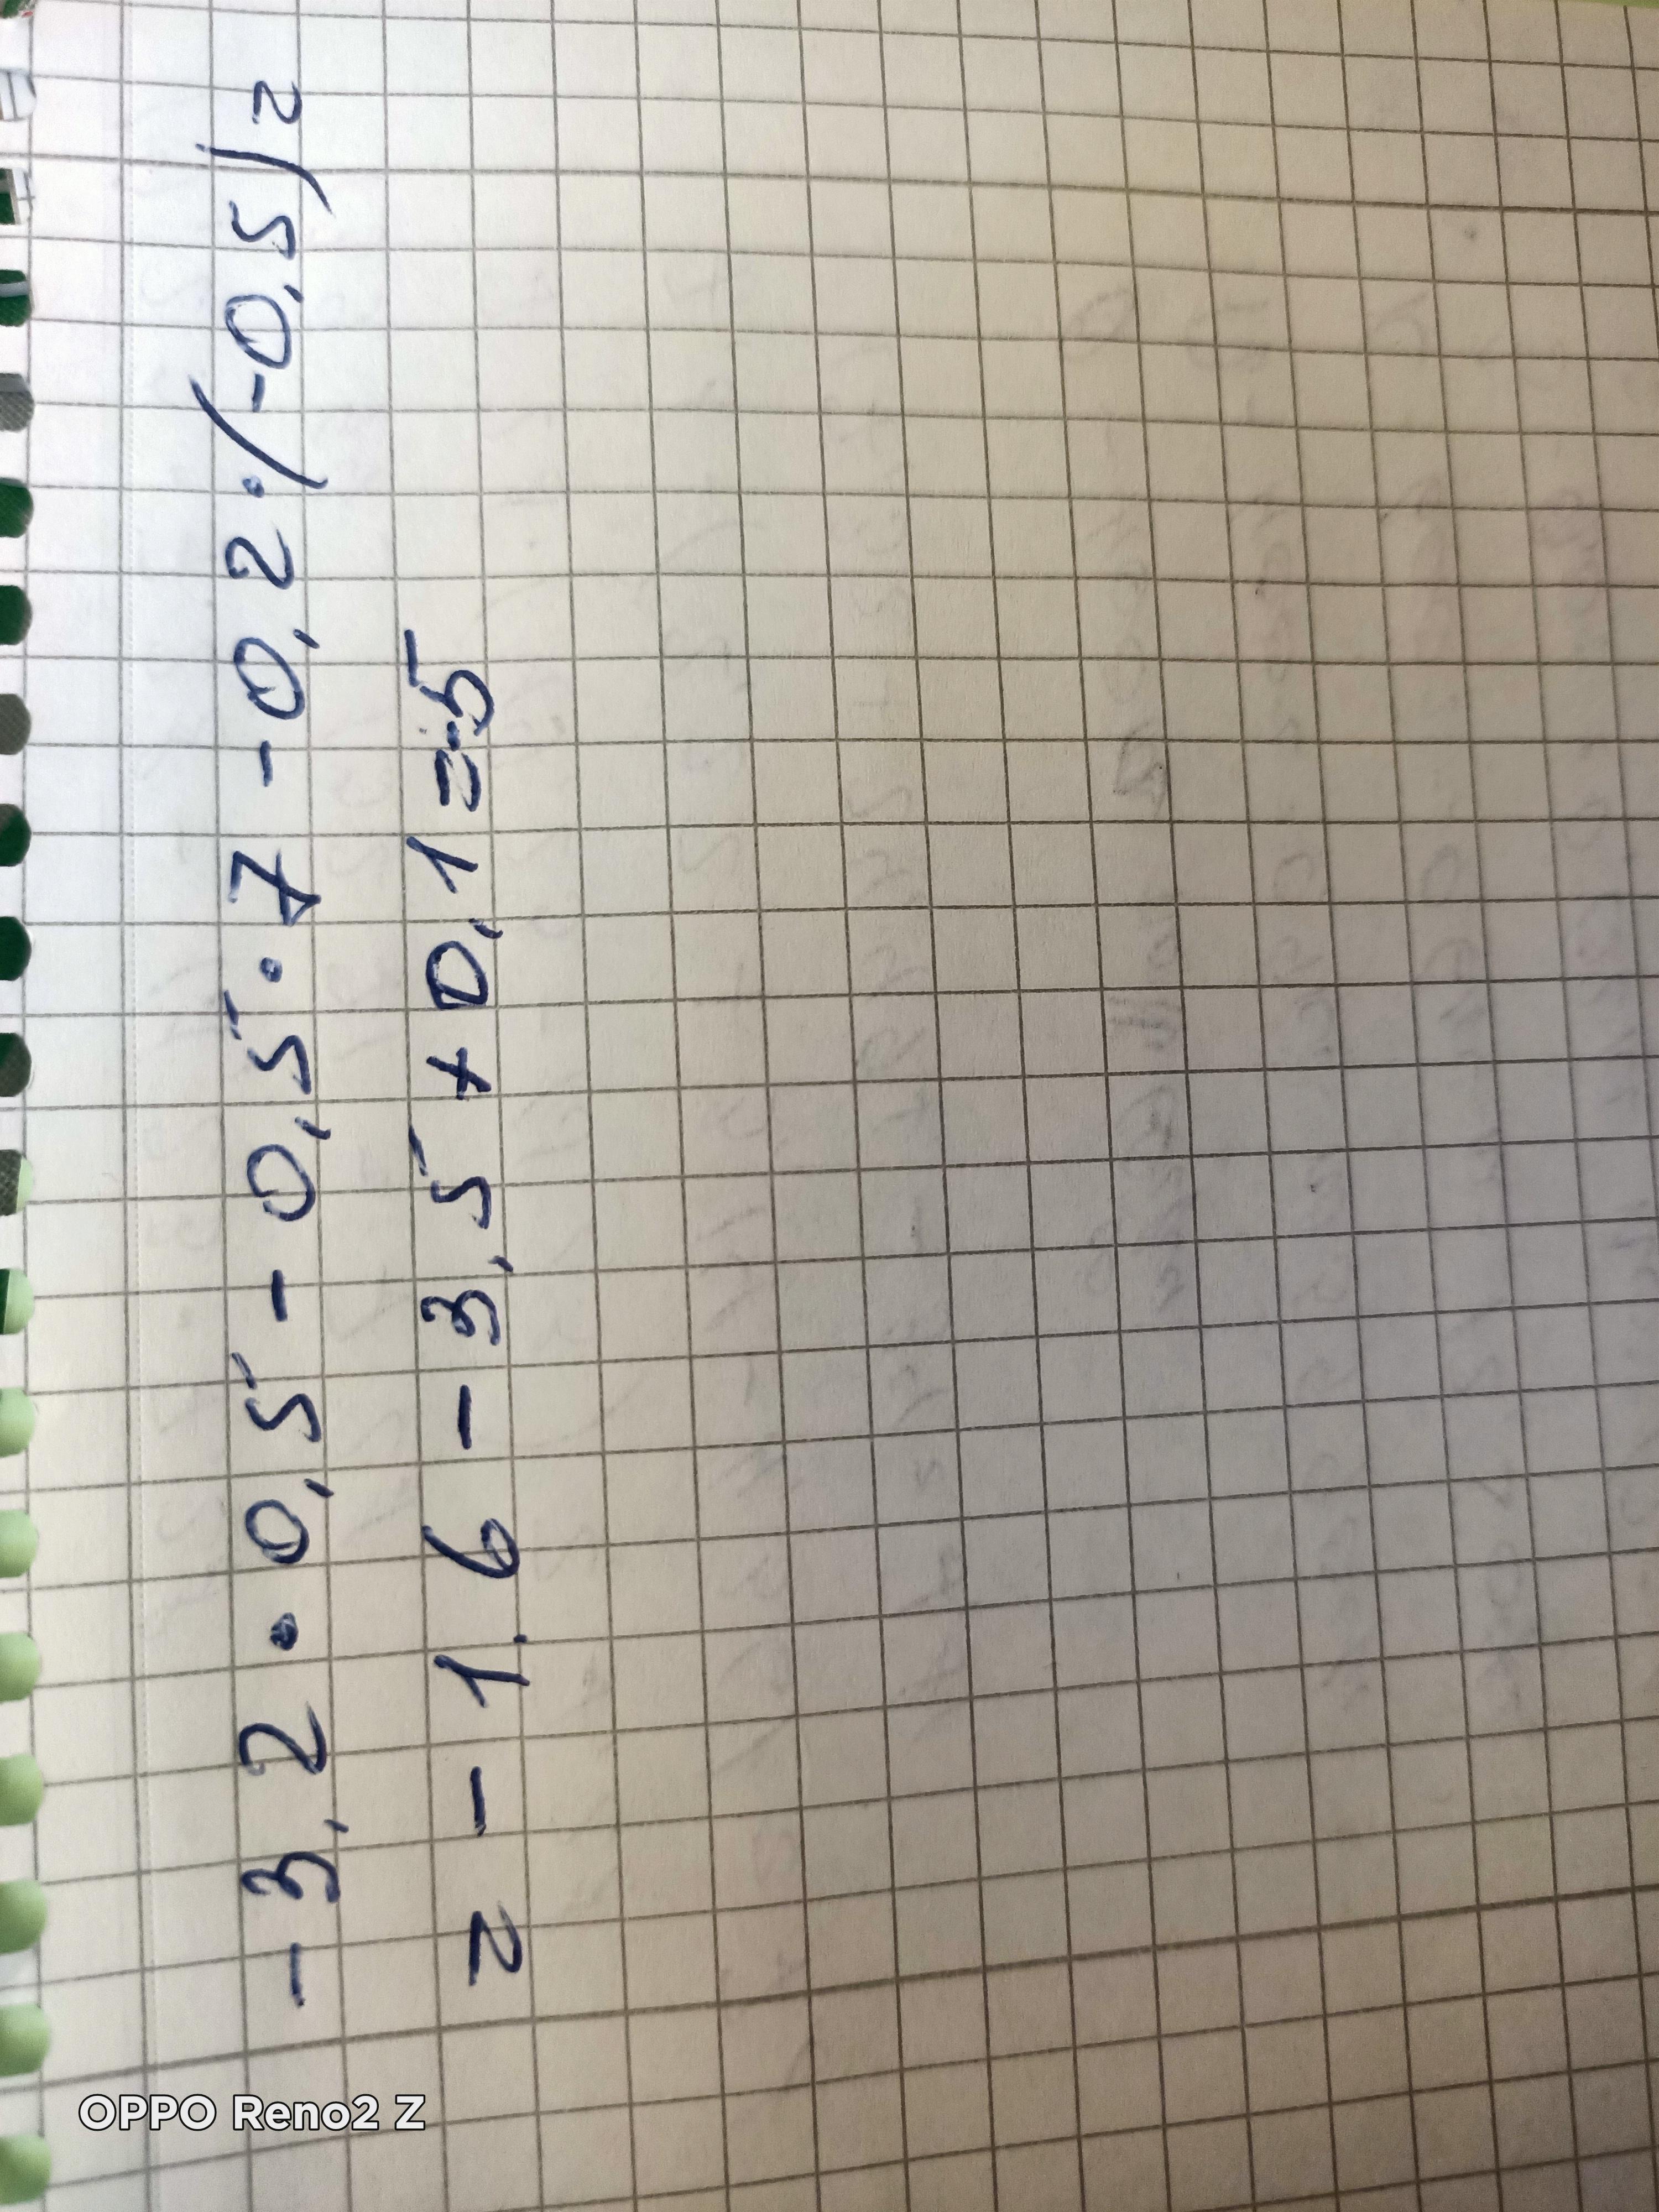 -3,2 · 0,5 - 0,5 · 7 - 0,2 · (-0,5) =
= - 1.6 - 3,5 + 0,1 = -5
OPPO Reno2 Z